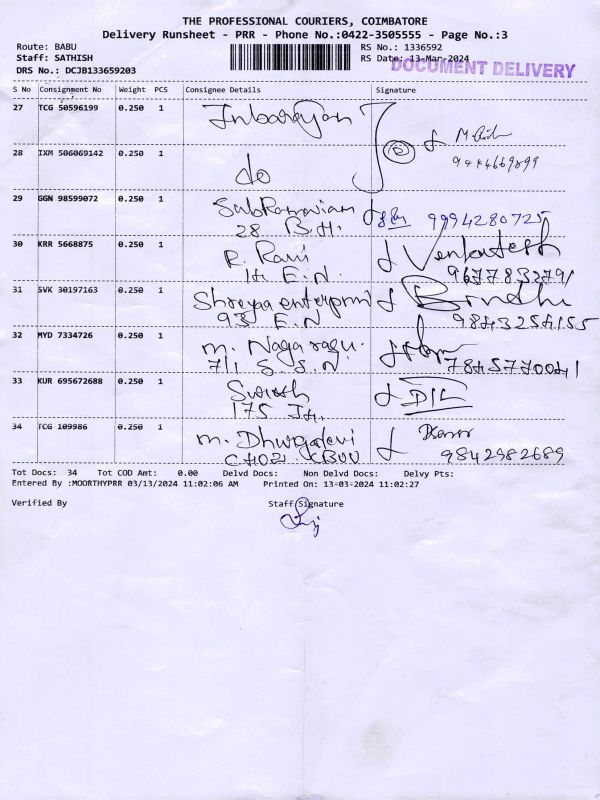 THE PROFESSIONAL COURIERS, COIMBATORE
Delivery Runsheet - PRR - Phone No.:0422-3505555 - Page No.:3
Route: BABU
RS No.: 1336592
Staff: SATHISH
RS Date: 13-Mar-2024
DOCUMENT DELIVERY
DRS No.: DCJB133659203
S No Consignment No Weight PCS Consignee Details Signature
27 TCG 50596199 0.250 1
28 IXM 506069142 0.250 1 do
29 GGN 98599072 0.250 1 9994280725
28 B.H.
30 KRR 5668875 0.250 1 R. Ravi Venkatesh
14 E.N. 9677833791
31 SVK 30197163 0.250 1 Shreya Brndhu
93 E.N 9843254155
32 MYD 7334726 0.250 1 m. Nagaraju.
711 S.S.N 7845770041
33 KUR 695672688 0.250 1 Suresh
175 JH.
34 TCG 109986 0.250 1 m. Dhurgadevi
9842982689
Tot Docs: 34 Tot COD Amt: 0.00 Delvd Docs: Non Delvd Docs: Delvy Pts:
Entered By :MOORTHYPRR 03/13/2024 11:02:06 AM Printed On: 13-03-2024 11:02:27
Verified By Staff Signature